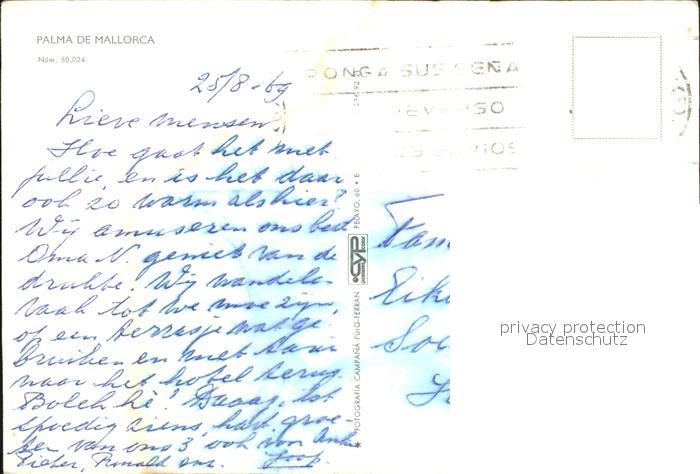 PALMA DE MALLORCA
Núm. 50.024
25/8-69
PONGA SUS SEÑA
REVERSO
Lieve mensen
Hoe gaat het met
jullie, en is het daar
ook zo warm als hier?
Wij amuseren ons best
Oma N. geniet van de
drukte. Wij wandelen
vaak tot we moe zijn,
op een terrasje wat ge
bruiken en met
naar het hotel terug
he! Daaag, tot
spoedig ziens, hart. groe-
ten van ons 3 ook voor
Pieter, Ronald enz. Joop.
FOTOGRAFIA CAMPAÑÁ PUIG-FERRÁN
CYP
PELAYO, 60 • B
Fam
Eike
privacy protection
Datenschutz